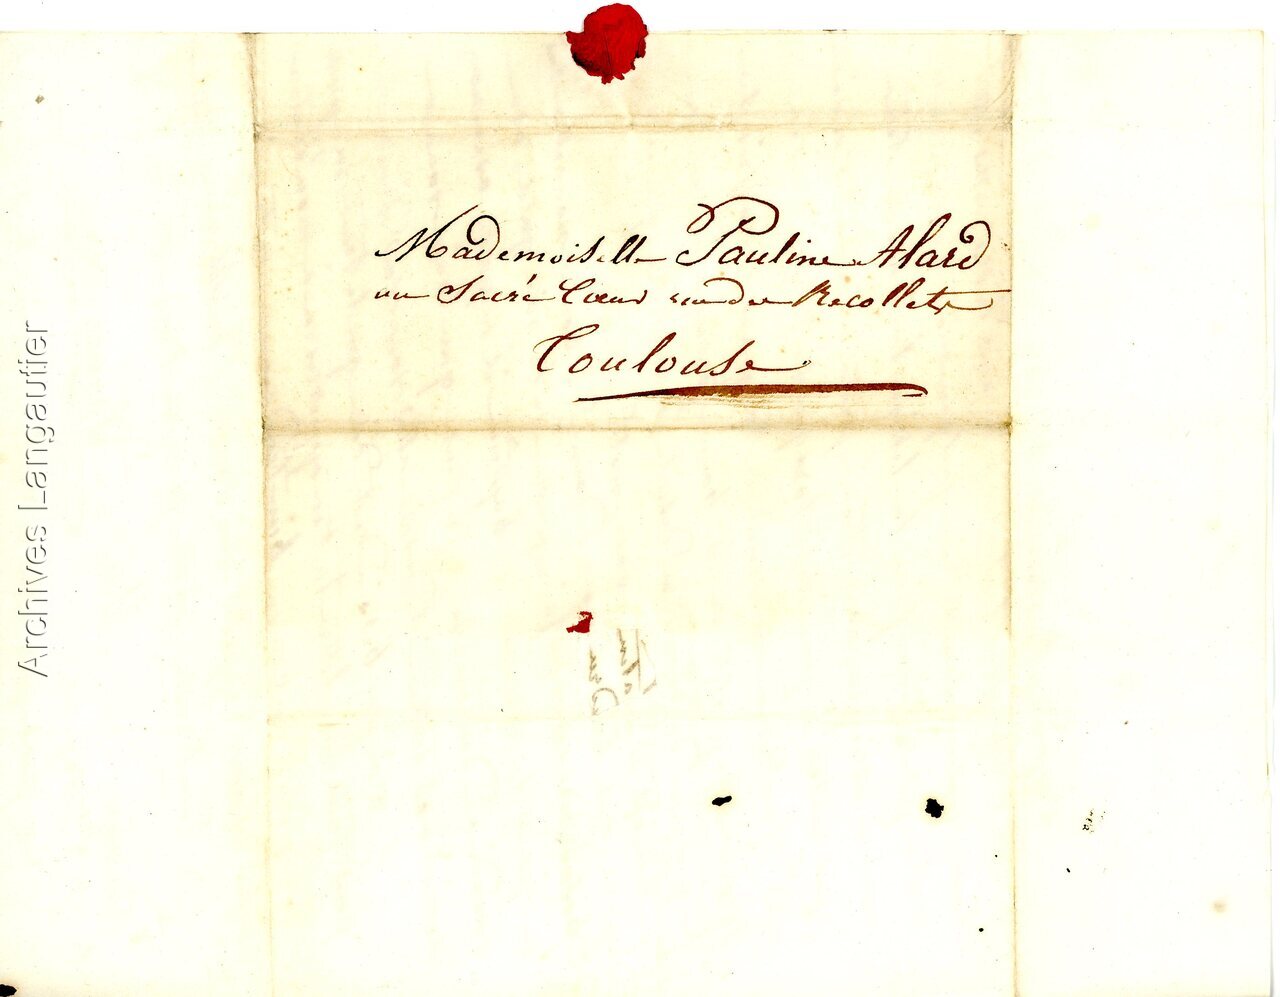 Mademoiselle Pauline Alard
au Sacré Cœur rue des Recollets
Toulouse
Archives Langautier